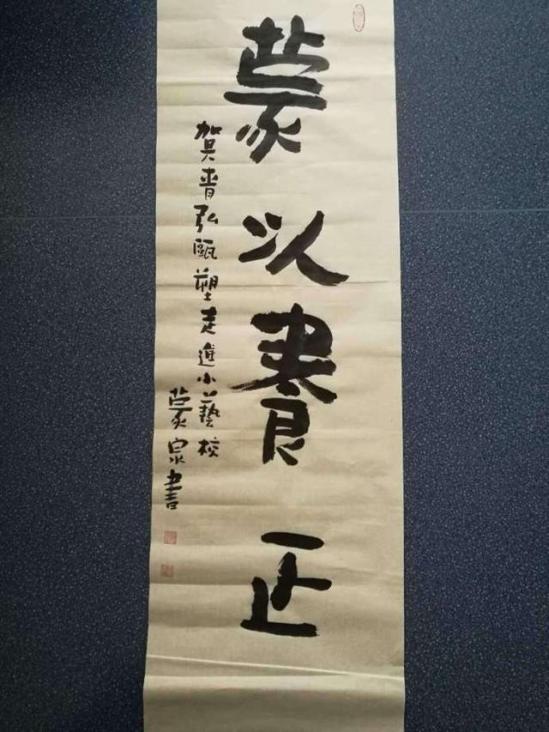 蒙以養正
賀青弘甌塑走進小藝校
蒙泉書